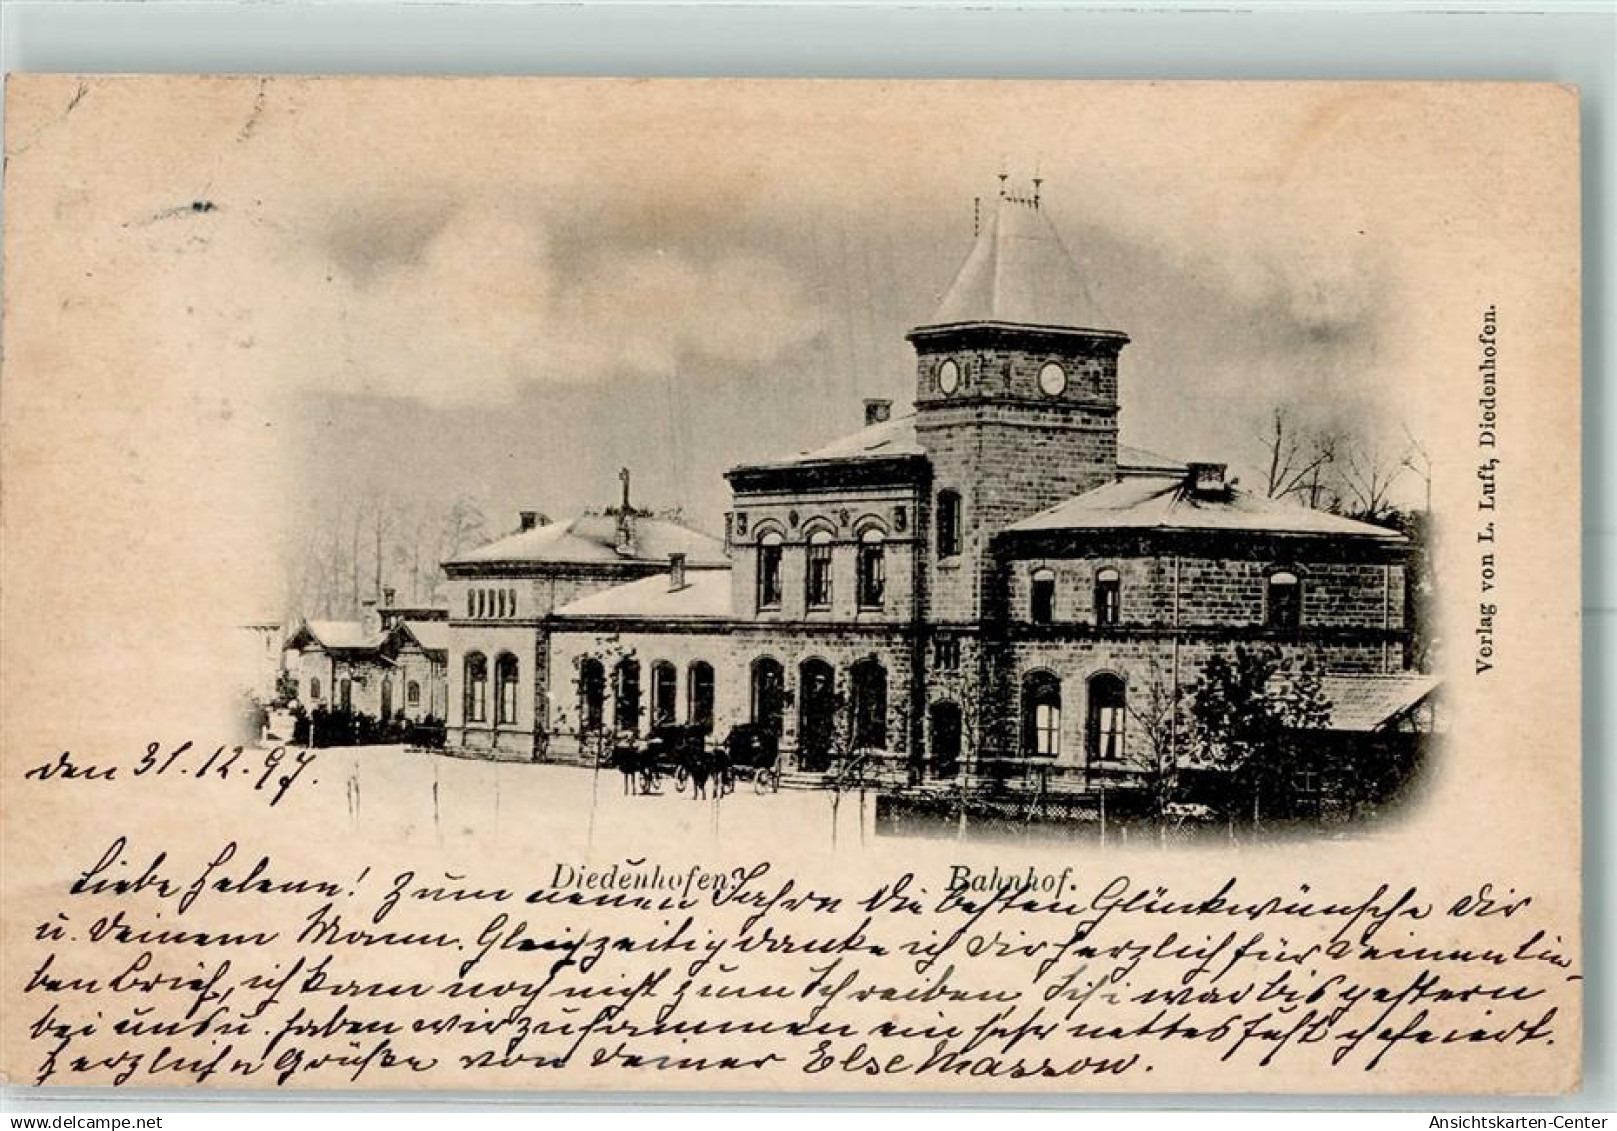 Verlag von L. Luft, Diedenhofen.
den 31. 12. 97.
Diedenhofen. Bahnhof.
Liebe Helene! Zum neuen Jahre die besten Glückwünsche Dir
u. Deinem Mann. Gleichzeitig danke ich Dir herzlich für Deinen lie-
ben Brief, ich kam noch nicht zum Schreiben, war bis gestern
bei uns u. haben wir zusammen ein sehr nettes Fest gefeiert.
Herzliche Grüße von Deiner Else Massow.
www.delcampe.net
Ansichtskarten-Center